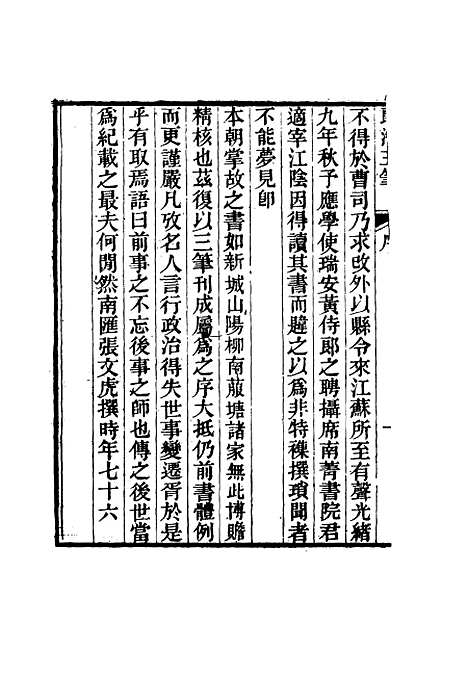 不得於曹司乃求改外以縣令來江蘇所至有聲光緒
九年秋予應學使瑞安黃侍郎之聘攝席南菁書院君
適宰江陰因得讀其書而韙之以爲非特襍撰瑣聞者
不能夢見卽
本朝掌故之書如新城山陽柳南菔塘諸家無此博贍
精核也茲復以三筆刊成屬爲之序大抵仍前書體例
而更謹嚴凡攷名人言行政治得失世事變遷胥於是
乎有取焉語曰前事之不忘後事之師也傳之後世當
爲紀載之最夫何閒然南匯張文虎撰時年七十六